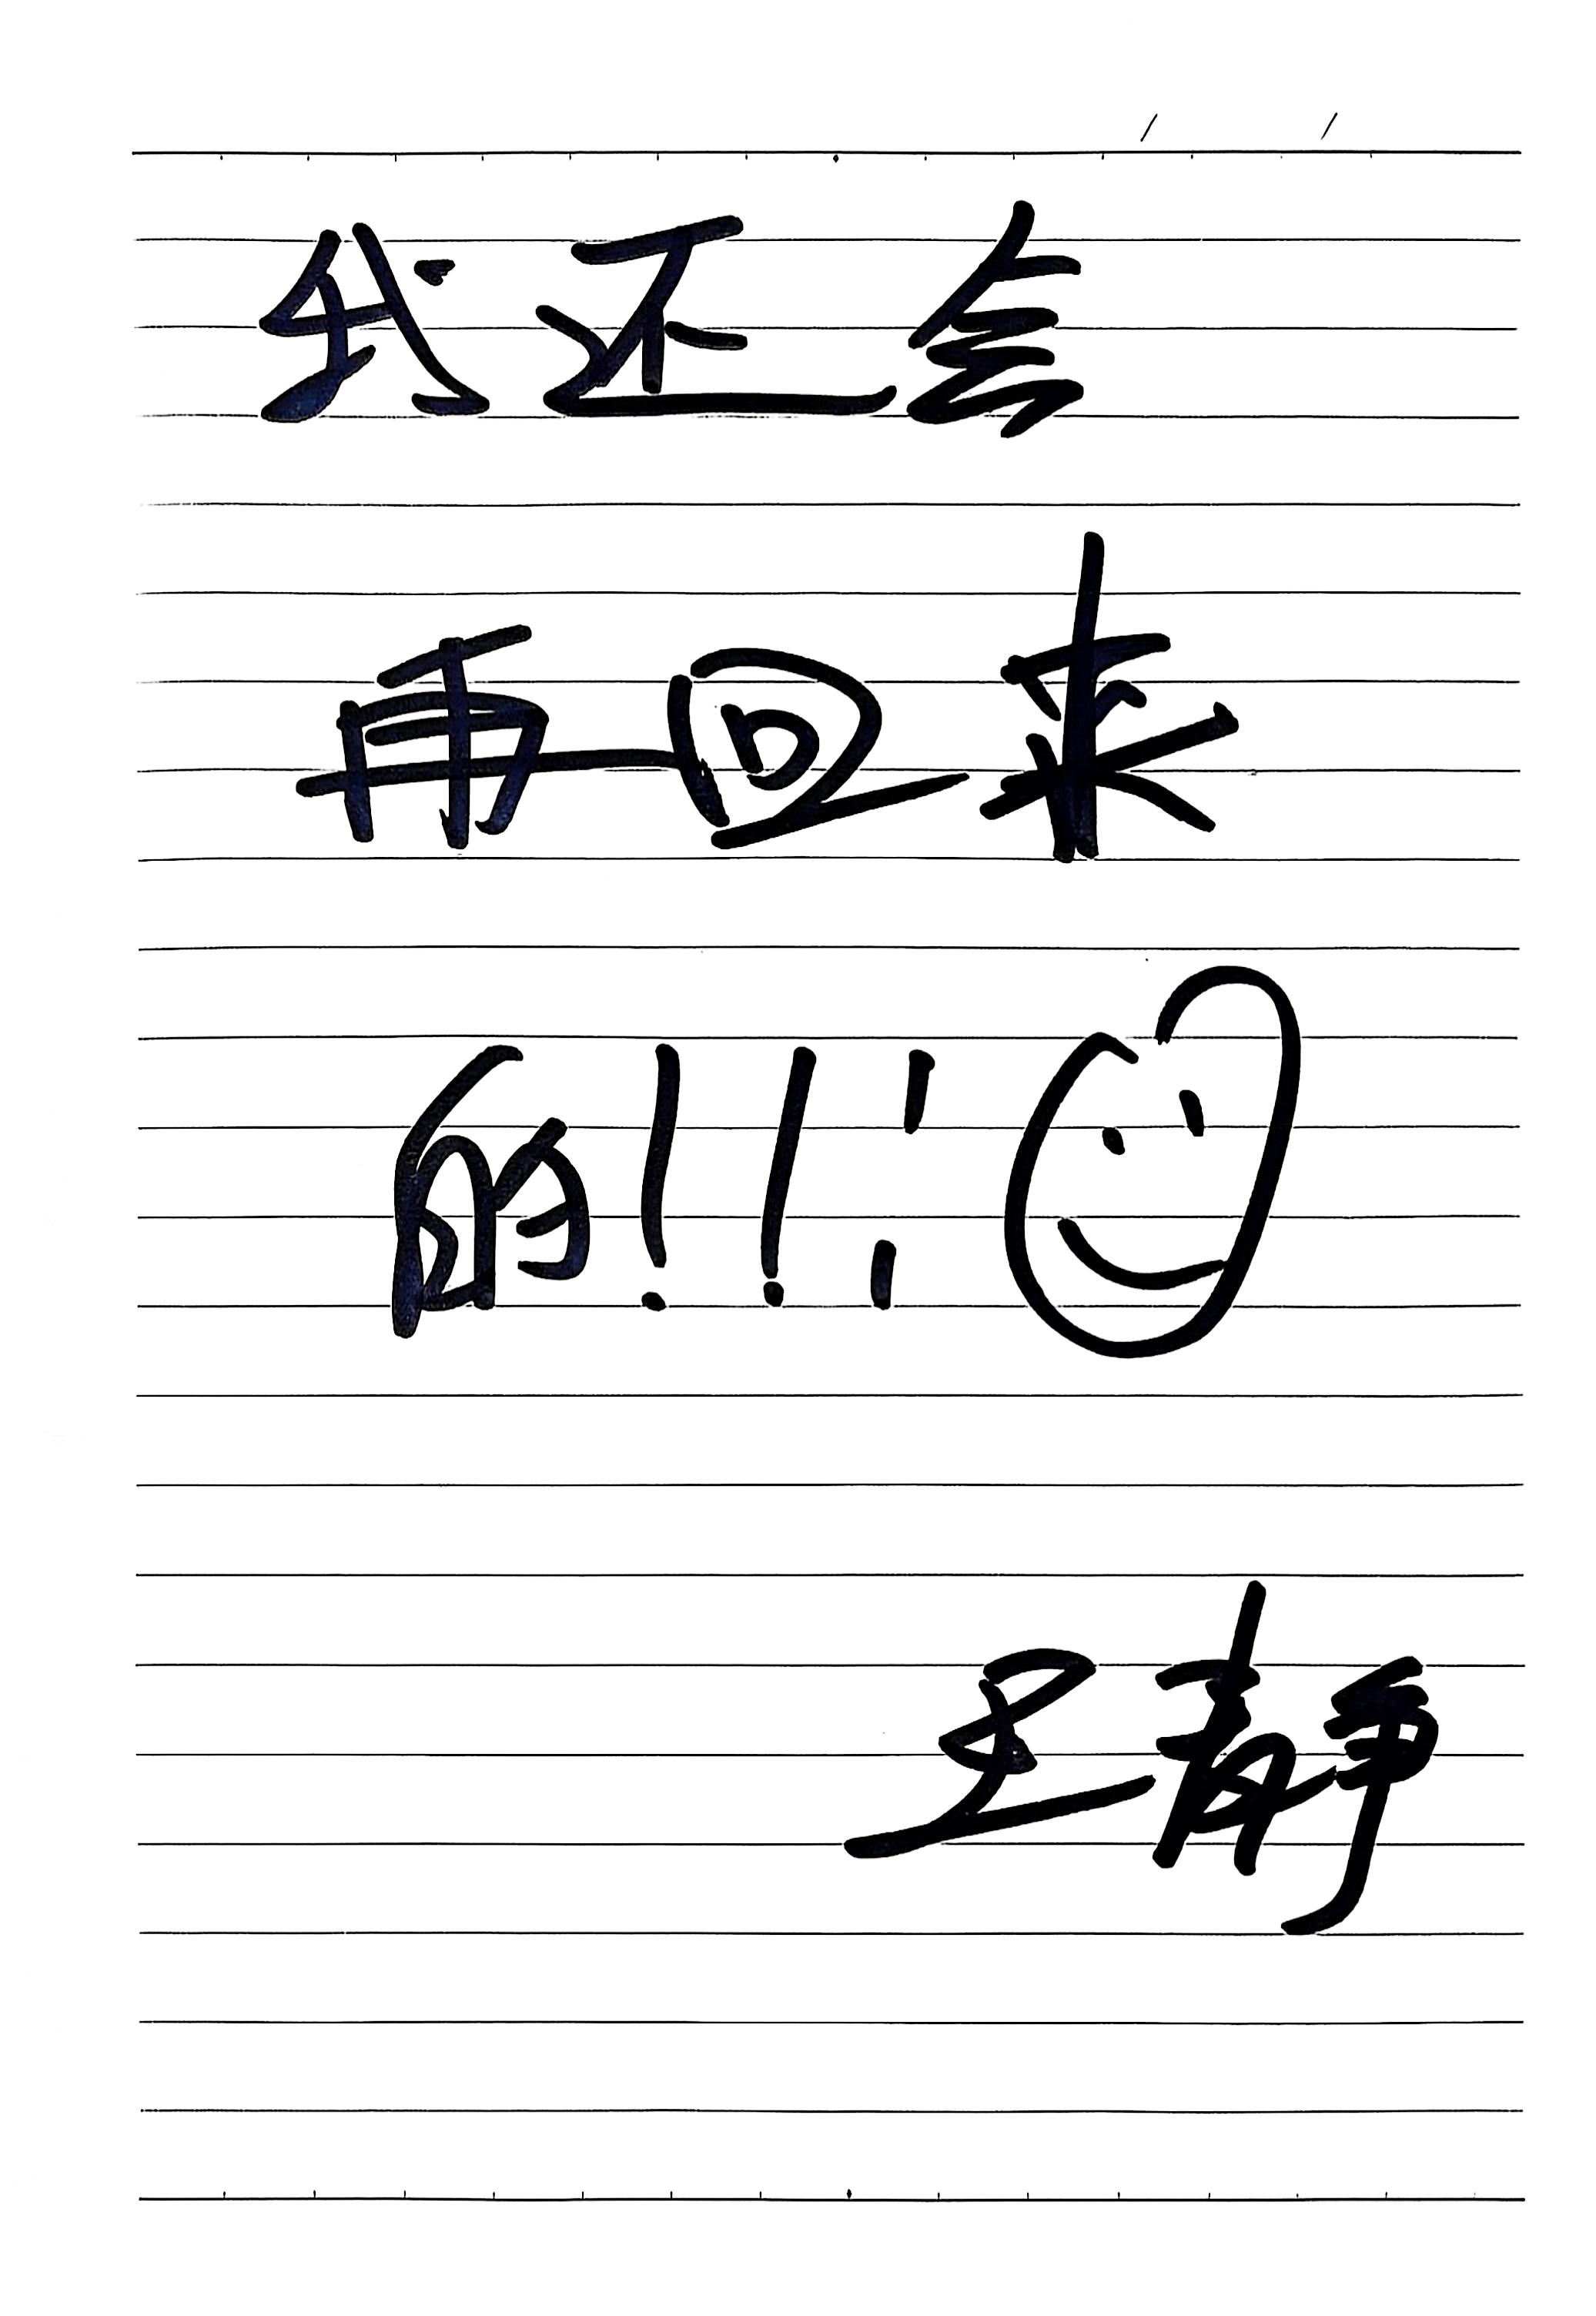 我还会
再回来
的!!!
王静